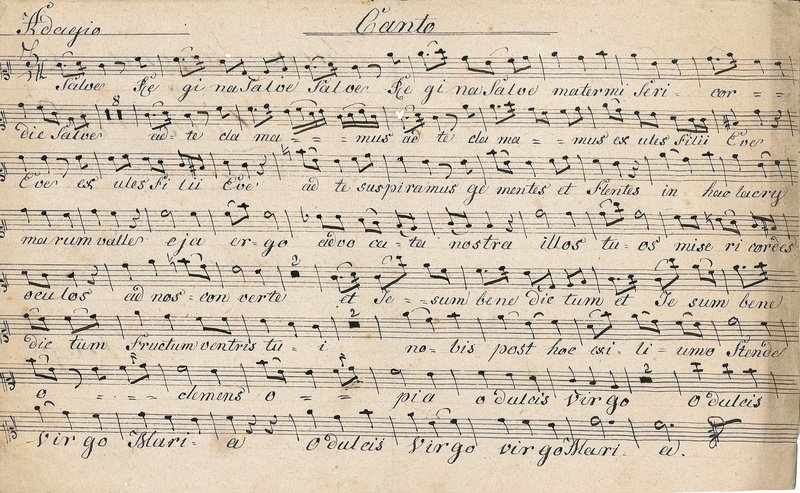 Adagio Canto
Salve Re gi na Salve Salve Re gi na Salve mater mi seri- cor = =
8
die Salve ad te cla ma = = = mus ad te cla ma = = mus ex ules Filii Eve
Eve ex ules Fi lii Eve ad te suspiramus ge mentes et Flentes in hac lacry
marum valle eja er=go advo ca=ta nostra illos tu=os mise ri cordes
2
oculos ad nos=con verte et Je==sum bene dic tum et Je sum bene
2
dic tum Fructum ventris tu=i no=bis post hoc exi-li=umo Stende
2
o = = = clemens o = = pia o dulcis virgo o dulcis
virgo Mari=a o dulcis virgo virgo Mari=a.